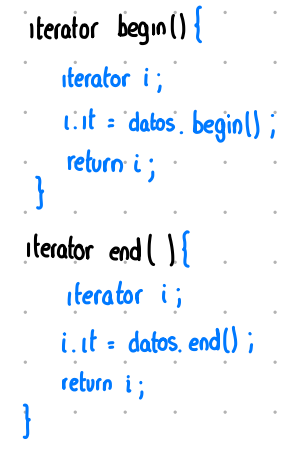 iterator begin(){
iterator i;
i.it = datos.begin();
return i;
}
iterator end(){
iterator i;
i.it = datos.end();
return i;
}